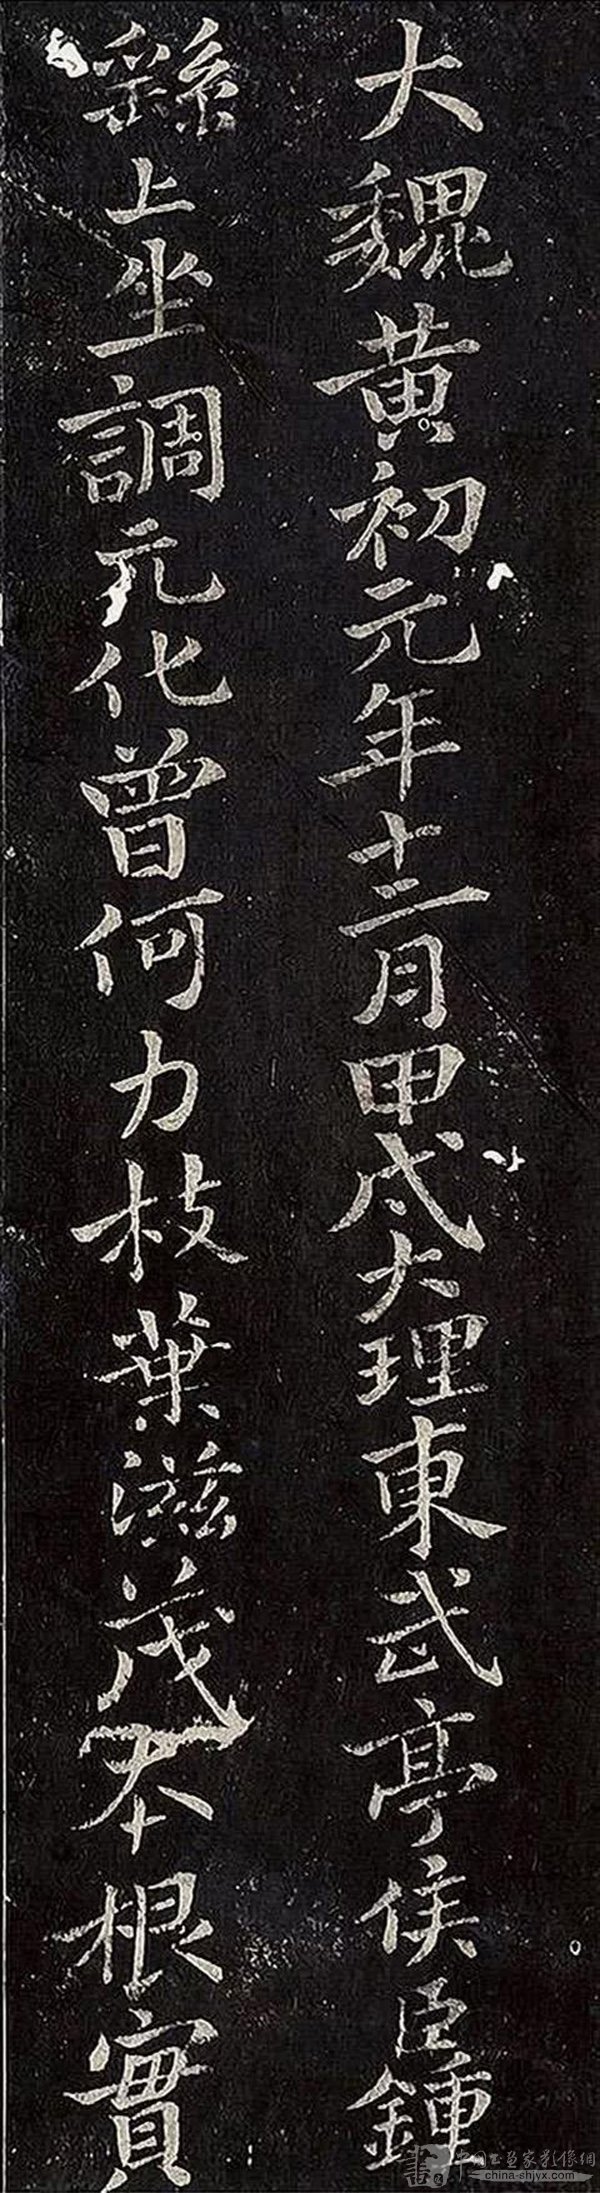 大魏黄初元年十二月甲戌大理東武亭侯臣鍾
繇上坐調元化曾何力枝葉滋茂本根實
書 中国书画家影像網
www.china-shjyx.com